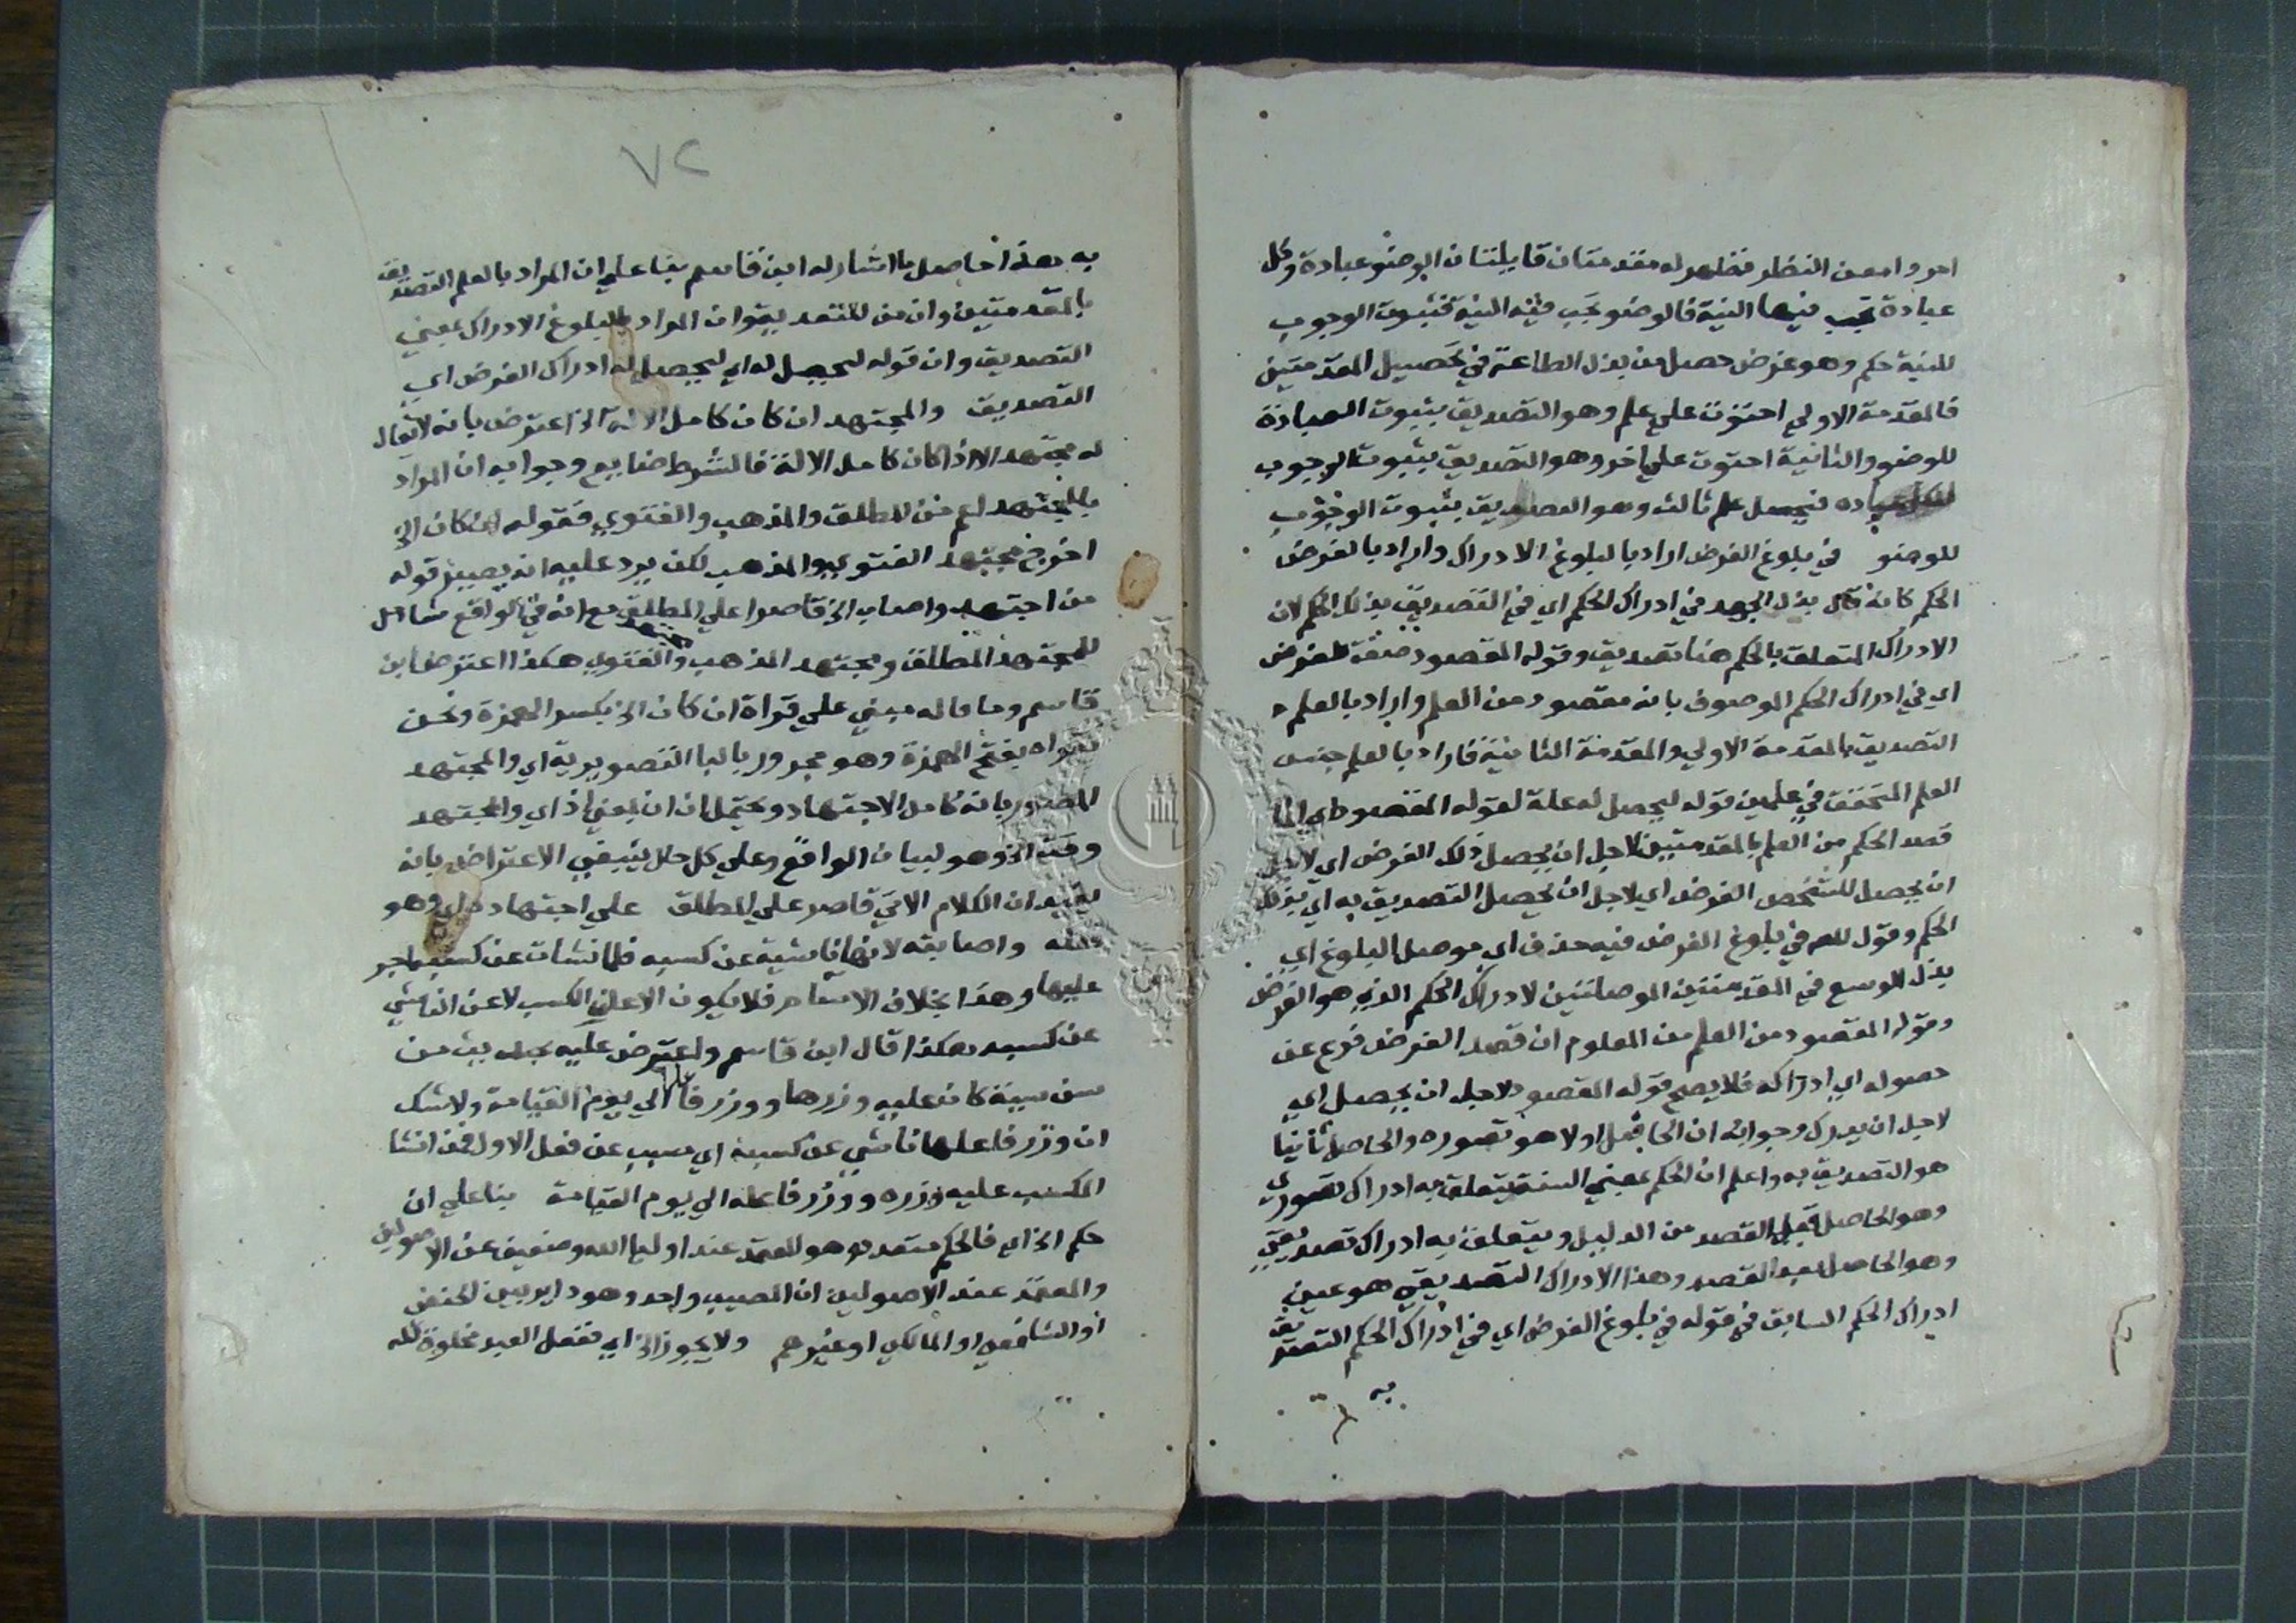 امر وامعن النظر فظهر له مقدمتان قايلتان الوضو عبادة وكل
عبادة تجب فيها النية فالوضو تجب فيه النية فثبوت الوجوب
للنية حكم وهو غرض حصل من بذل الطاعة في تحصيل المقدمتين
فالمقدمة الاولي احتوت علي علم وهو التصديق بثبوت العبادة
للوضو والثانية احتوت علي اخر وهو التصديق بثبوت الوجوب
لكل عباده فيحصل علم ثالث وهو التصديق بثبوت الوجوب
للوضو في بلوغ الغرض اراد بالبلوغ الادراك واراد بالغرض
الحكم كانه قال بذل الجهد في ادراك الحكم اي في التصديق بذلك الحكم لان
الادراك المتعلق بالحكم هنا تصديق وقوله المقصود صفة للغرض
اي في ادراك الحكم الموصوف بانه مقصود من العلم واراد بالعلم
التصديق بالمقدمة الاولي والمقدمة الثانية فاراد بالعلم جنس
العلم المتحقق في علمين قوله ليحصل له علة لقوله المقصود اي انما
قصد الحكم من العلم بالمقدمتين لاجل ان يحصل ذلك الغرض اي لاجل
ان يحصل للشخص الغرض اي لاجل ان يحصل التصديق به اي بذلك
الحكم وقول المص في بلوغ الغرض فيه حذف اي موصل البلوغ اي
بذل الوسع في المقدمتين الموصلتين لادراك الحكم الذي هو الغرض
وقوله المقصود من العلم من المعلوم ان قصد الغرض فرع عن
حصوله اي ادراكه فلا يصح قوله المقصود لاجل ان يحصل اي
لاجل ان يدرك وجوابه ان الحاصل اولا هو تصوره والحاصل ثانيا
هو التصديق به واعلم ان الحكم بمعني النسبة يتعلق به ادراك تصوري
وهو الحاصل قبل القصد من الدليل ويتعلق به ادراك تصديقي
وهو الحاصل بعد القصد وهذا الادراك التصديقي هو عين
ادراك الحكم السابق في قوله في بلوغ الغرض اي في ادراك الحكم التصديق
به
٧٢
به هذا حاصل ما اشار له ابن قاسم بنا علي ان المراد بالعلم التصديق
بالمقدمتين وان من للتعدية وان المراد بالبلوغ الادراك بمعني
التصديق وان قوله ليحصل له اي ليحصل له ادراك الغرض اي
التصديق والمجتهد ان كان كامل الالة الخ اعترض بانه لا يقال
له مجتهد الا اذا كان كامل الالة فالشرط ضايع وجوابه ان المراد
بالمجتهد اعم من المطلق والمذهب والفتوي فقوله ان كان الخ
اخرج مجتهد الفتوي والمذهب لكن يرد عليه انه يصير قوله
من اجتهد واصاب الخ قاصرا علي المطلق مع انه في الواقع شامل
للمجتهد المطلق ومجتهد المذهب ومجتهد الفتوي هكذا اعترض ابن
قاسم وما قاله مبني علي قراة ان كان الخ بكسر الهمزة ونحن
نقراه بفتح الهمزة وهو مجرور بالبا التصويرية اي والمجتهد
المصور بانه كامل الاجتهاد ويحتمل ان ان بمعني اذ اي والمجتهد
وقت الخ وهو لبيان الواقع وعلي كل حال ينبغي الاعتراض بانه
يفيد ان الكلام الاتي قاصر علي المطلق علي اجتهاده اي وهو
واصابته لانها ناشية عن كسبه فلما نشات عن كسبه اجر
عليها وهذا بخلاف الاثم فلا يكون الا علي الكسب لا عن الناشي
عن كسبه هكذا قال ابن قاسم واعترض عليه بحديث من
سن سيئة كان عليه وزرها ووزر فاعلها الي يوم القيامة ولا شك
ان وزر فاعلها ناشي عن كسبه اي مسبب عن فعل الاول فمن انشا
المكسب عليه وزره ووزر فاعله الي يوم القيامة بنا علي ان
حكم الخ اي فالحكم متعدد وهو المعتمد عند اوليا الله وضعيف عند الاصوليين
والمعتمد عند الاصوليين ان المصيب واحد وهو داير بين الحنفي
او الشافعي او المالكي او غيرهم ولا يجوز الخ اي ففعل العبد مخلوق لله